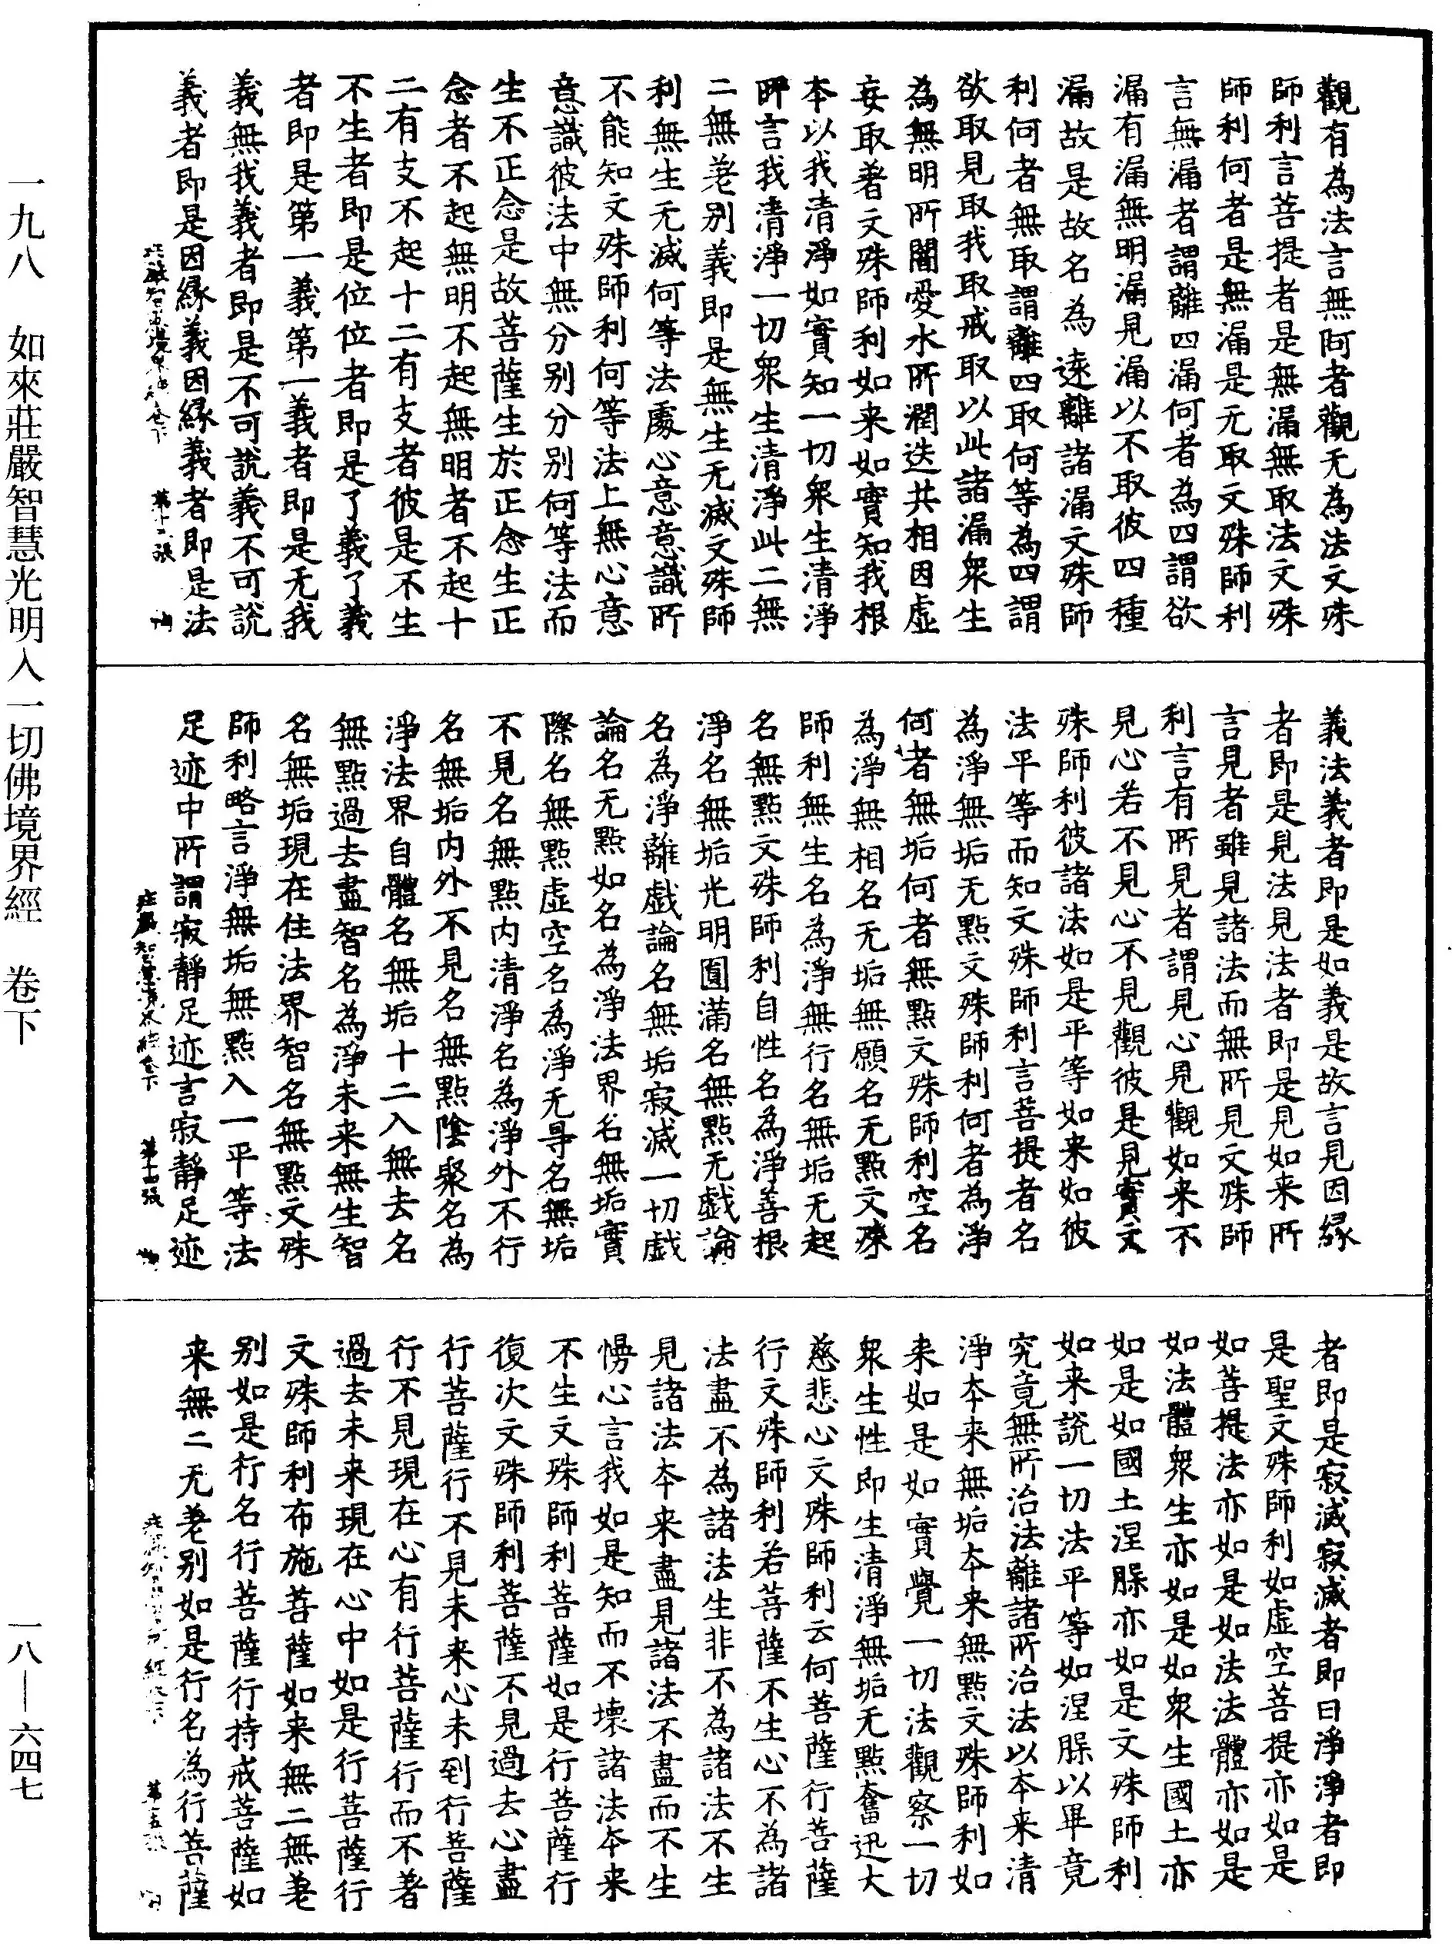 觀有為法言無阿者觀无為法文殊
師利言菩提者是無漏無取法文殊
師利何者是無漏是无取文殊師利
言無漏者謂離四漏何者為四謂欲
漏有漏無明漏見漏以不取彼四種
漏故是故名為遠離諸漏文殊師
利何者無取謂離四取何等為四謂
欲取見取我取戒取以此諸漏衆生
為無明所闇愛水所潤迭共相因虛
妄取著文殊師利如来如實知我根
夲以我清淨如實知一切衆生清淨
所言我清淨一切衆生清淨此二無
二無差别義即是無生无滅文殊師
利無生无滅何等法處心意意識所
不能知文殊師利何等法上無心意
意識彼法中無分别分别何等法而
生不正念是故菩薩生於正念生正
念者不起無明不起無明者不起十
二有支不起十二有支者彼是不生
不生者即是位位者即是了義了義
者即是第一義第一義者即是无我
義無我義者即是不可說義不可說
義者即是因緣義因緣義者即是法
義法義者即是如義是故言見因緣
者即是見法見法者即是見如来所
言見者雖見諸法而無所見文殊師
利言有所見者謂見心見觀如来不
見心若不見心不見觀彼是見實文
殊師利彼諸法如是平等如来如彼
法平等而知文殊師利言菩提者名
為淨無垢无點文殊師利何者為淨
何者無垢何者無點文殊師利空名
為淨無相名无垢無願名无點文殊
師利無生名為淨無行名無垢无起
名無點文殊師利自性名為淨善根
淨名無垢光明圓滿名無點无戲論
名為淨離戲論名無垢寂滅一切戲
論名无點如名為淨法界名無垢實
際名無點虛空名為淨无㝵名無垢
不見名無點內清淨名為淨外不行
名無垢內外不見名無點陰聚名為
淨法界自體名無垢十二入無去名
無點過去盡智名為淨未来無生智
名無垢現在住法界智名無點文殊
師利略言淨無垢無點入一平等法
足迹中所謂寂靜足迹言寂靜足迹
者即是寂滅寂滅者即曰淨淨者即
是聖文殊師利如虛空菩提亦如是
如菩提法亦如是如法法體亦如是
如法體衆生亦如是如衆生國土亦
如是如國土涅槃亦如是文殊師利
如来說一切法平等如涅槃以畢竟
究竟無所治法離諸所治法以夲来清
淨夲来無垢夲来無點文殊師利如
来如是如實覺一切法觀察一切
衆生性即生清淨無垢无點奮迅大
慈悲心文殊師利云何菩薩行菩薩
行文殊師利若菩薩不生心不為諸
法盡不為諸法生非不為諸法不生
見諸法夲来盡見諸法不盡而不生
慢心言我如是知而不壞諸法夲来
不生文殊師利菩薩如是行菩薩行
復次文殊師利菩薩不見過去心盡
行菩薩行不見未来心未到行菩薩
行不見現在心有行菩薩行而不著
過去未来現在心中如是行菩薩行
文殊師利布施菩薩如来無二無差
别如是行名行菩薩行持戒菩薩如
来無二无差别如是行名為行菩薩
一九八　如來莊嚴智慧光明入一切佛境界經　卷下　一八—六四七